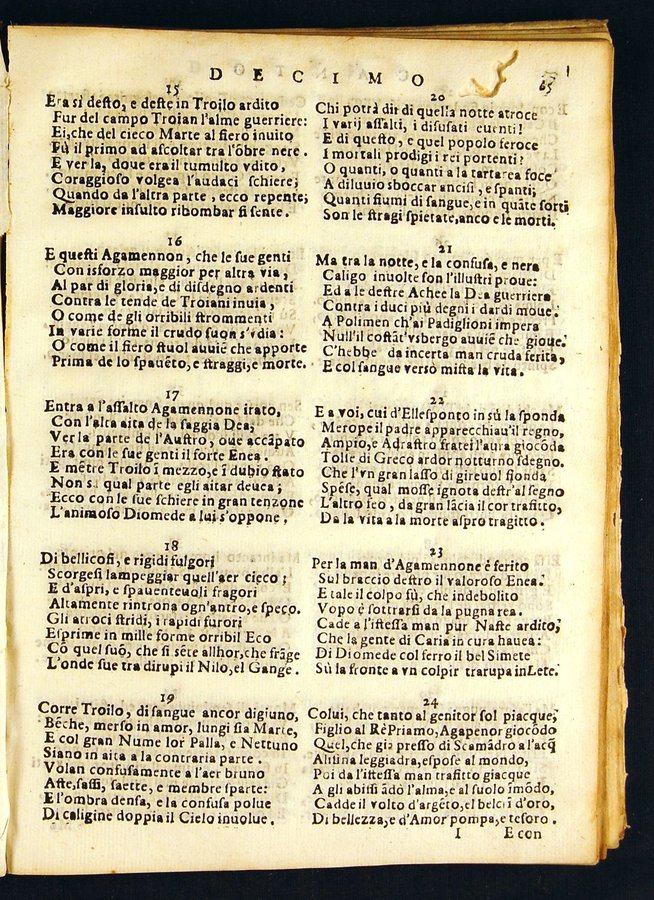 DECIMO
65
15
Era sì desto, e deste in Troilo ardito
Fur del campo Troian l'alme guerriere:
Ei, che del cieco Marte al fiero inuito
Fù il primo ad ascoltar tra l'ôbre nere.
E ver la, doue era il tumulto vdito,
Coraggioso volgea l'audaci schiere;
Quando da l'altra parte, ecco repente;
Maggiore insulto ribombar si sente.
16
E questi Agamennon, che le sue genti
Con isforzo maggior per altra via,
Al par di gloria, e di disdegno ardenti
Contra le tende de Troiani inuia,
O come de gli orribili strommenti
In varie forme il crudo suon s'vdia:
O come il fiero stuol auuiẽ che apporte
Prima de lo spauẽto, e straggi, e morte.
17
Entra a l'assalto Agamennone irato,
Con l'alta aita de la saggia Dea,
Ver la parte de l'Austro, oue accãpato
Era con le sue genti il forte Enea.
E mẽtre Troilo ĩ mezzo, e ĩ dubio stato
Non sà qual parte egli aitar deuea;
Ecco con le sue schiere in gran tenzone
L'animoso Diomede a lui s'oppone.
18
Di bellicosi, e rigidi fulgori
Scorgesi lampeggiar quell'aer cieco;
E d'aspri, e spauenteuoli fragori
Altamente rintrona ogn'antro, e speco.
Gli atroci stridi, i rapidi furori
Esprime in mille forme orribil Eco
Cõ quel suõ, che si sẽte allhor, che frãge
L'onde sue tra dirupi il Nilo, el Gange.
19
Corre Troilo, di sangue ancor digiuno,
Bẽche, merso in amor, lungi sia Marte,
E col gran Nume lor Palla, e Nettuno
Siano in aita a la contraria parte.
Volan confusamente a l'aer bruno
Aste, sassi, saette, e membre sparte:
E l'ombra densa, e la confusa polue
Di caligine doppia il Cielo inuolue.
20
Chi potrà dir di quella notte atroce
I varij assalti, i disusati euenti!
E di questo, e quel popolo feroce
I mortali prodigi i rei portenti?
O quanti, o quanti a la tartarea foce
A diluuio sboccar ancisi, e spanti;
Quanti fiumi di sangue, e in quãte sorti
Son le stragi spietate, anco e le morti.
21
Ma tra la notte, e la confusa, e nera
Caligo inuolte son l'illustri proue:
Ed a le destre Achee la Dea guerriera
Contra i duci più degni i dardi moue.
A Polimen ch'ai Padiglioni impera
Null'il costãt'vsbergo auuiẽ che gioue.
C'hebbe da incerta man cruda ferita,
E col sangue versò mista la vita.
22
E a voi, cui d'Ellesponto in sù la sponda
Merope il padre apparecchiau'il regno,
Ampio, e Adrastro fratei l'aura giocõda
Tolse di Greco ardor notturno sdegno.
Che l'vn gran lasso di gireuol fionda
Spẽse, qual mosse ignota destr'al segno
L'altro seo, da gran lãcia il cor trafitto,
Da la vita a la morte aspro tragitto.
23
Per la man d'Agamennone è ferito
Sul braccio destro il valoroso Enea.
E tale il colpo fù, che indebolito
Vopo è sottrarsi da la pugna rea.
Cade a l'istessa man pur Naste ardito,
Che la gente di Caria in cura hauea:
Di Diomed col ferro il bel Simete
Sù la fronte a vn colpir trarupa in Lete.
24
Colui, che tanto al genitor sol piacque,
Figlio al Rè Priamo, Agapenor giocõdo
Quel, che già presso di Scamãdro a l'acq
Altiina leggiadra, espose al mondo,
Poi da l'istessa man trafitto giacque
A gli abissi ãdò l'alma, e al suolo ĩmõdo,
Cadde il volto d'argẽto, el bel crĩ d'oro,
Di bellezza, e d'Amor pompa, e tesoro.
I E con